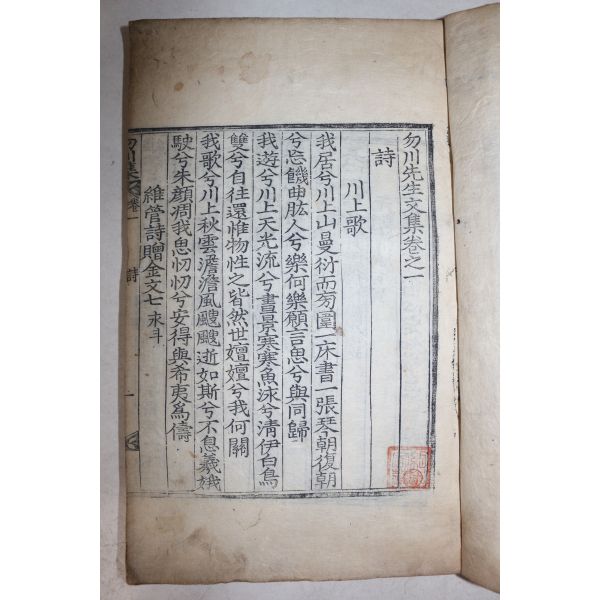 勿川先生文集卷之一
詩
川上歌
我居兮川上山曼衍而圍一床書一張琴朝復朝
兮忘饑曲肱人兮樂何樂願言思兮與同歸
我遊兮川上天光流兮晝景寒寒魚泳兮清伊白鳥
雙兮自往還惟物性之皆然世嬗嬗兮我何關
我歌兮川上秋雲澹澹風颼颼逝如斯兮不息羲娥
駛兮朱顏凋我思忉忉兮安得與希夷爲儔
維管詩贈金文七 來斗
勿川集卷一 詩 一